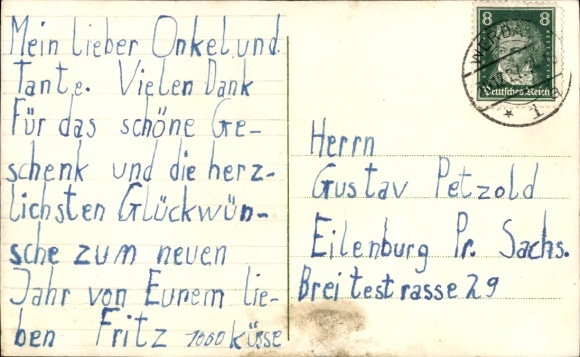 Mein lieber Onkel und
Tante. Vielen Dank
Für das schöne Ge-
schenk und die herz-
lichsten Glückwün-
sche zum neuen
Jahr von Eurem lie-
ben Fritz 1000 küsse
8 8
BEETHOVEN
Deutsches Reich
WERDAU
* 1
Herrn
Gustav Petzold
Eilenburg Pr. Sachs.
Breitestrasse 29